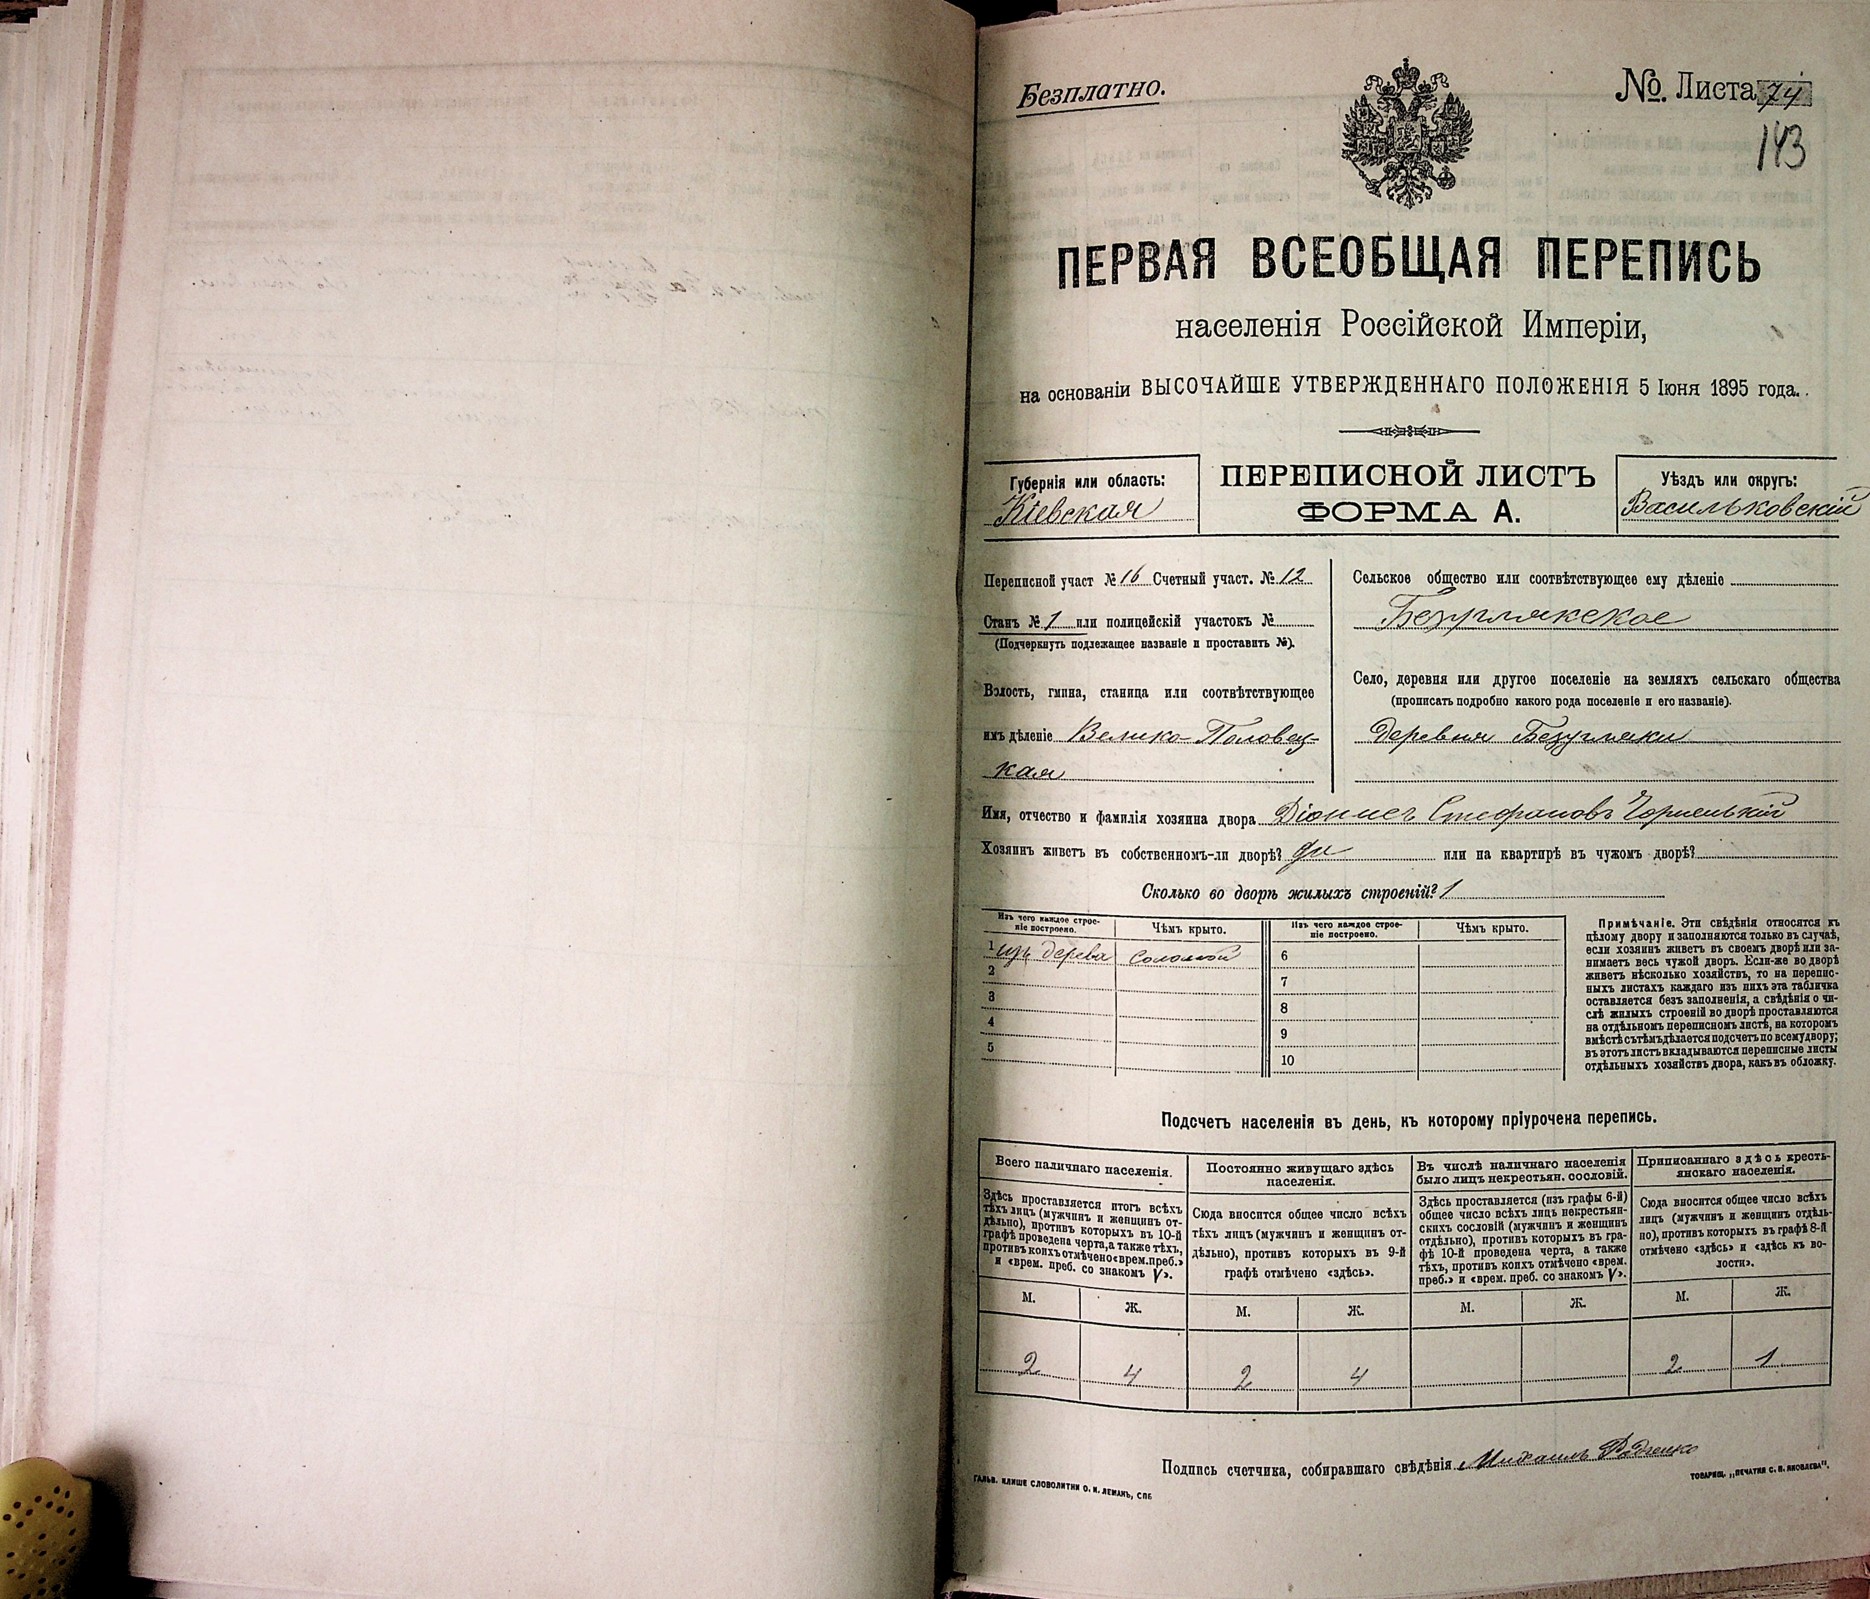 Безплатно.
№. Листа 74
143
ПЕРВАЯ ВСЕОБЩАЯ ПЕРЕПИСЬ
населенія Россійской Имперіи,
на основаніи ВЫСОЧАЙШЕ УТВЕРЖДЕННАГО ПОЛОЖЕНІЯ 5 Іюня 1895 года.
Губернія или область:
Кіевская
ПЕРЕПИСНОЙ ЛИСТЪ
ФОРМА А.
Уѣздъ или округъ:
Васильковскій
Переписной участ № 16 Счетный участ. № 12
Станъ № 1 или полицейскій участокъ №
(Подчеркнуть подлежащее названіе и проставить №).
Волость, гмина, станица или соотвѣтствующее
имъ дѣленіе Велико-Половец-
кая
Сельское общество или соотвѣтствующее ему дѣленіе
Безуглякское
Село, деревня или другое поселеніе на земляхъ сельскаго общества
(прописать подробно какого рода поселеніе и его названіе).
деревня Безугляки
Имя, отчество и фамилія хозяина двора Діонисъ Стефановъ Чорненькій
Хозяинъ живетъ въ собственномъ-ли дворѣ? да или на квартирѣ въ чужомъ дворѣ?
Сколько во дворѣ жилыхъ строеній? 1
Изъ чего каждое строе-
ніе построено.
Чѣмъ крыто.
Изъ чего каждое строе-
ніе построено.
Чѣмъ крыто.
1 изъ дерева соломой
2
3
4
5
6
7
8
9
10
Примѣчаніе. Эти свѣдѣнія относятся къ
цѣлому двору и заполняются только въ случаѣ,
если хозяинъ живетъ въ своемъ дворѣ или за-
нимаетъ весь чужой дворъ. Если-же во дворѣ
живетъ нѣсколько хозяйствъ, то на перепис-
ныхъ листахъ каждаго изъ нихъ эта табличка
оставляется безъ заполненія, а свѣдѣнія о чи-
слѣ жилыхъ строеній во дворѣ проставляются
на отдѣльномъ переписномъ листѣ, на которомъ
вмѣстѣ съ тѣмъ дѣлается подсчетъ по всему двору;
въ этотъ листъ вкладываются переписные листы
отдѣльныхъ хозяйствъ двора, какъ въ обложку.
Подсчетъ населенія въ день, къ которому пріурочена перепись.
Всего наличнаго населенія.
Здѣсь проставляется итогъ всѣхъ
тѣхъ лицъ (мужчинъ и женщинъ от-
дѣльно), противъ которыхъ въ 10-й
графѣ проведена черта, а также тѣхъ,
противъ коихъ отмѣчено «врем. преб.»
и «врем. преб. со знакомъ V».
М. Ж.
2 4
Постоянно живущаго здѣсь
населенія.
Сюда вносится общее число всѣхъ
тѣхъ лицъ (мужчинъ и женщинъ от-
дѣльно), противъ которыхъ въ 9-й
графѣ отмѣчено «здѣсь».
М. Ж.
2 4
Въ числѣ наличнаго населенія
было лицъ некрестьян. сословій.
Здѣсь проставляется (изъ графы 6-й)
общее число всѣхъ лицъ некрестьян-
скихъ сословій (мужчинъ и женщинъ
отдѣльно), противъ которыхъ въ гра-
фѣ 10-й проведена черта, а также
тѣхъ, противъ коихъ отмѣчено «врем.
преб.» и «врем. преб. со знакомъ V».
М. Ж.
Приписаннаго здѣсь кресть-
янскаго населенія.
Сюда вносится общее число всѣхъ
лицъ (мужчинъ и женщинъ отдѣль-
но), противъ которыхъ въ графѣ 8-й
отмѣчено «здѣсь» и «здѣсь къ во-
лости».
М. Ж.
2 1
Подпись счетчика, собиравшаго свѣдѣнія Михаилъ
ГАЛЬВ. КЛИШЕ СЛОВОЛИТНИ О. И. ЛЕМАНЪ, СПБ
ТОВАРИЩ. „ПЕЧАТНЯ С. П. ЯКОВЛЕВА".